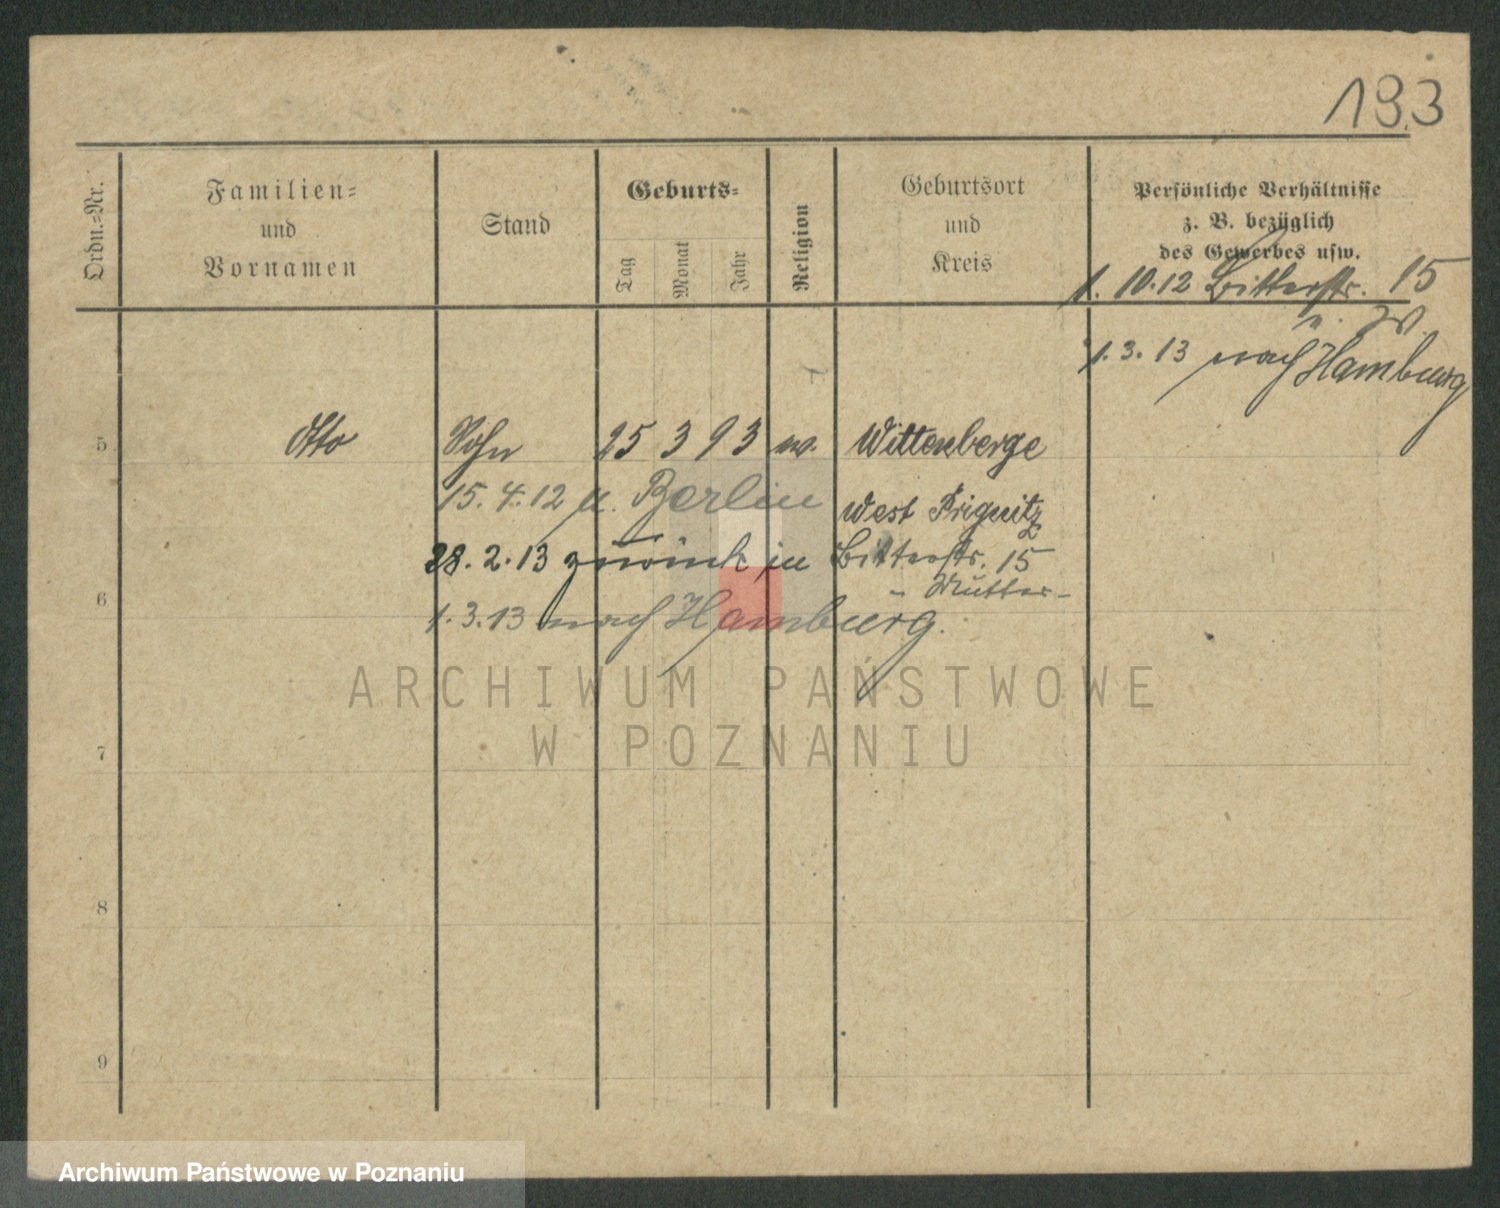 193
Ordn.=Nr.
Familien=
und
Vornamen
Stand
Geburts=
Tag
Monat
Jahr
Religion
Geburtsort
und
Kreis
Persönliche Verhältnisse
z. B. bezüglich
des Gewerbes usw.
1. 10.12 Bitterstr. 15
1. 3. 13 nach Hamburg
5 Otto Sohn 25 3 93 Wittenberge
15. 4. 12 n. Berlin
West Prignitz
28. 2. 13 zurück in Bitterstr. 15
Mutter
6
1. 3. 13 nach Hamburg.
ARCHIWUM PAŃSTWOWE
W POZNANIU
7
8
9
Archiwum Państwowe w Poznaniu